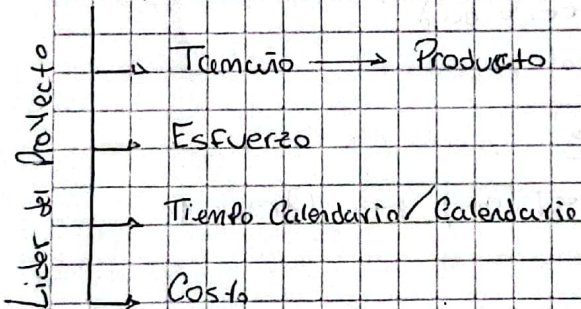 Lider del Proyecto
Tamaño → Producto
Esfuerzo
Tiempo Calendario/Calendario
Costo